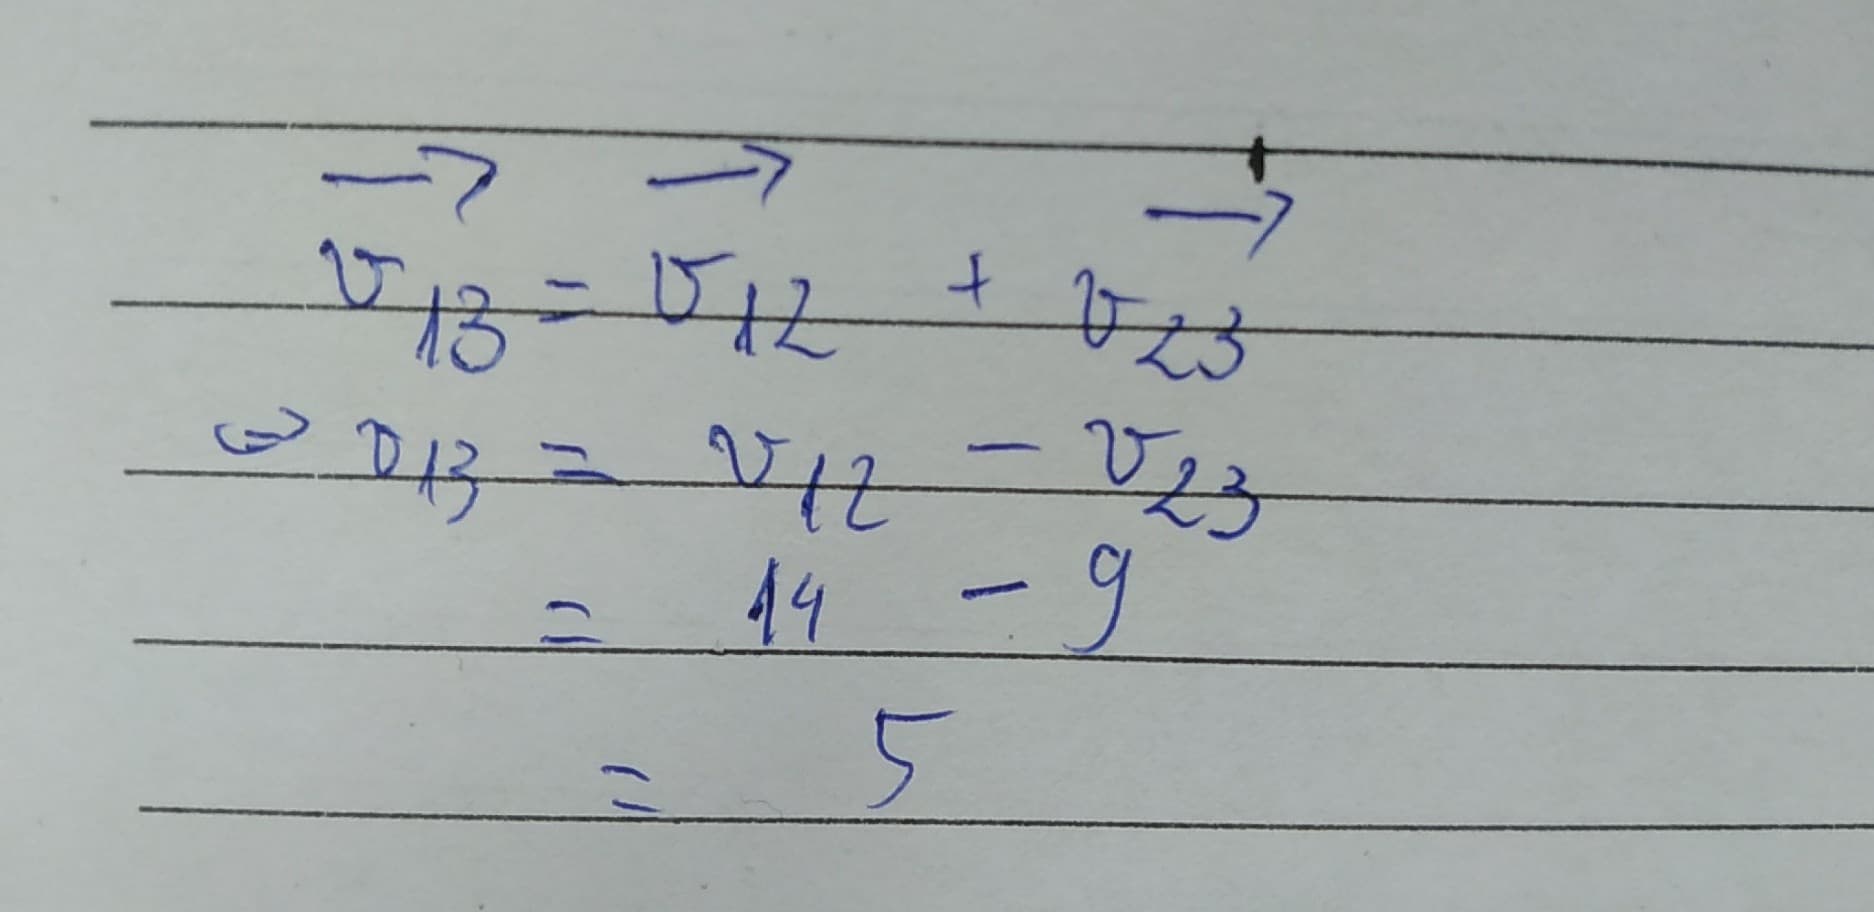 → → →
v₁₃ = v₁₂ + v₂₃
⇔ v₁₃ = v₁₂ - v₂₃
= 14 - 9
= 5